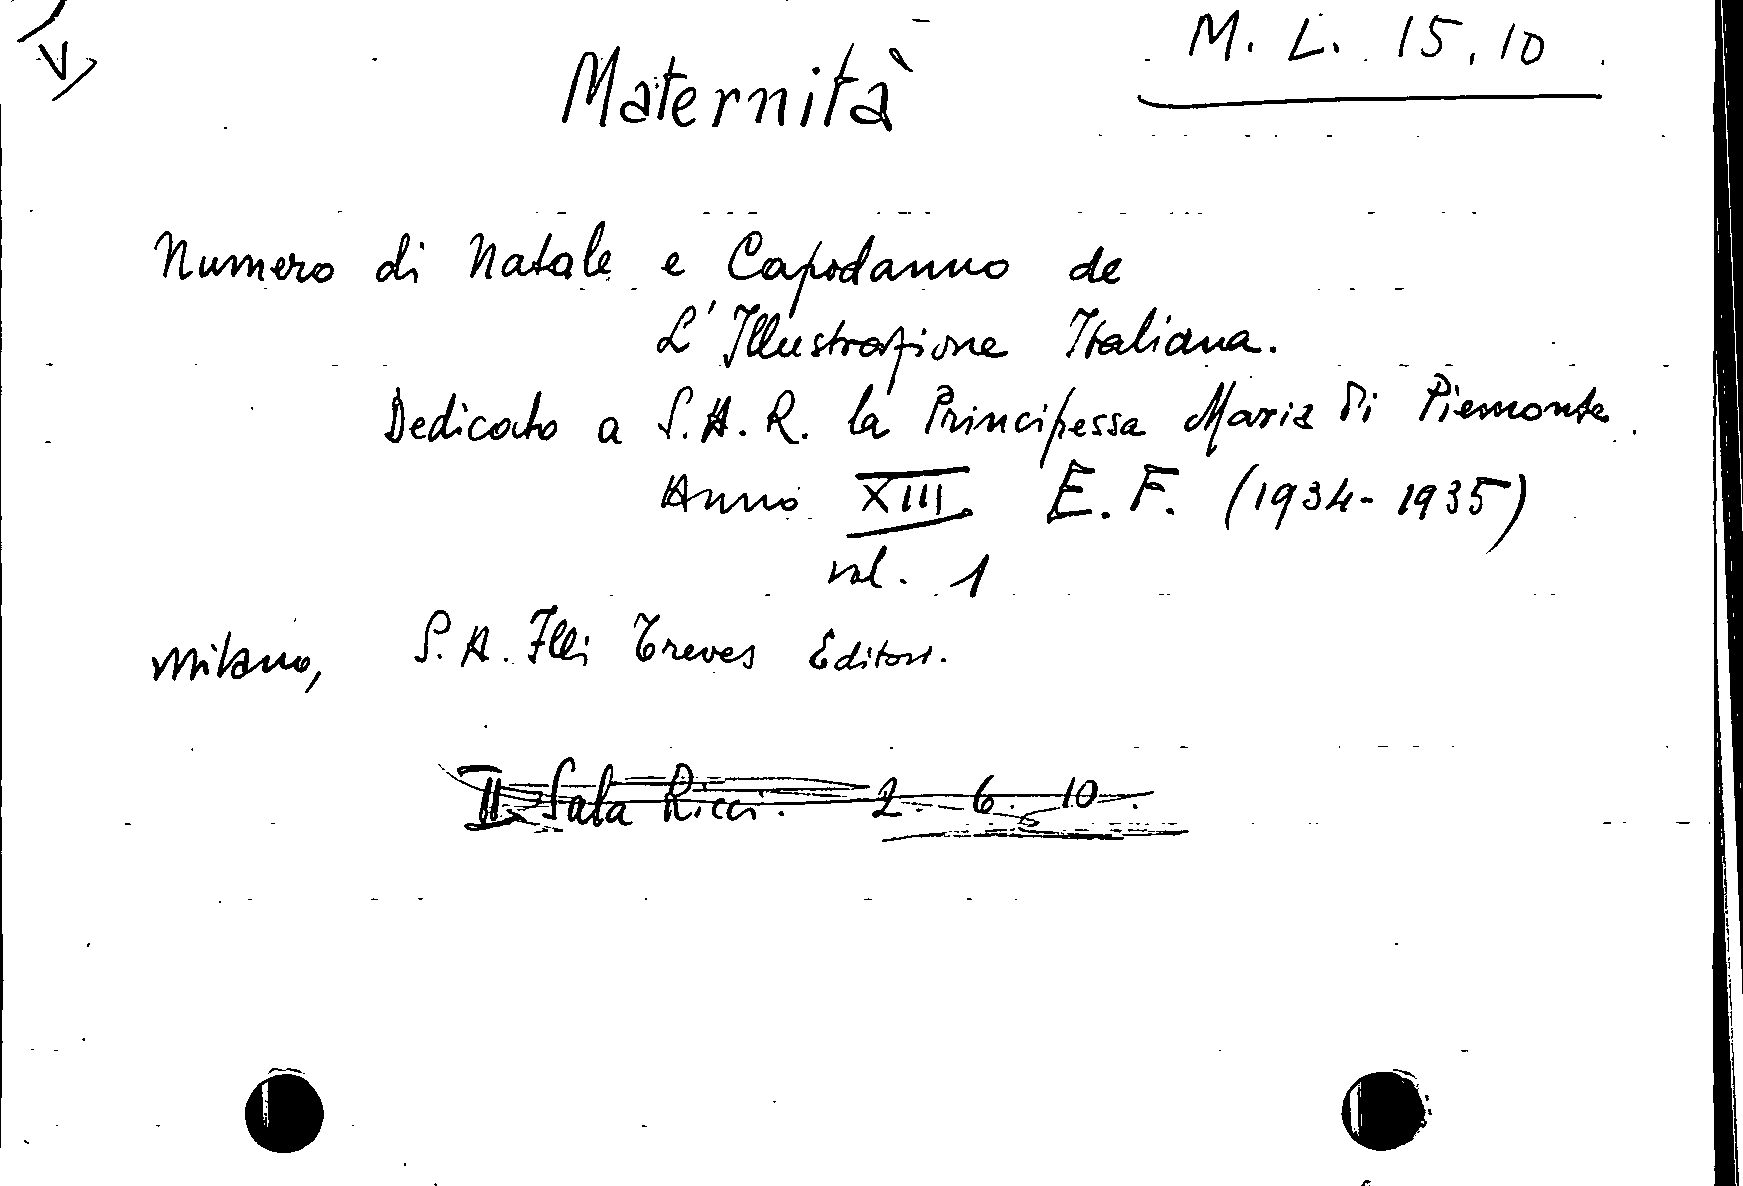 M. L. 15.10
Maternità
Numero di Natale e Capodanno de
L'Illustrazione Italiana.
Dedicato a S.A.R. la Principessa Maria di Piemonte.
Anno XIII E.F. (1934-1935)
vol. 1
Milano, S.A. Flli Treves Editori.
II Sala Ricci. 2. 6. 10.